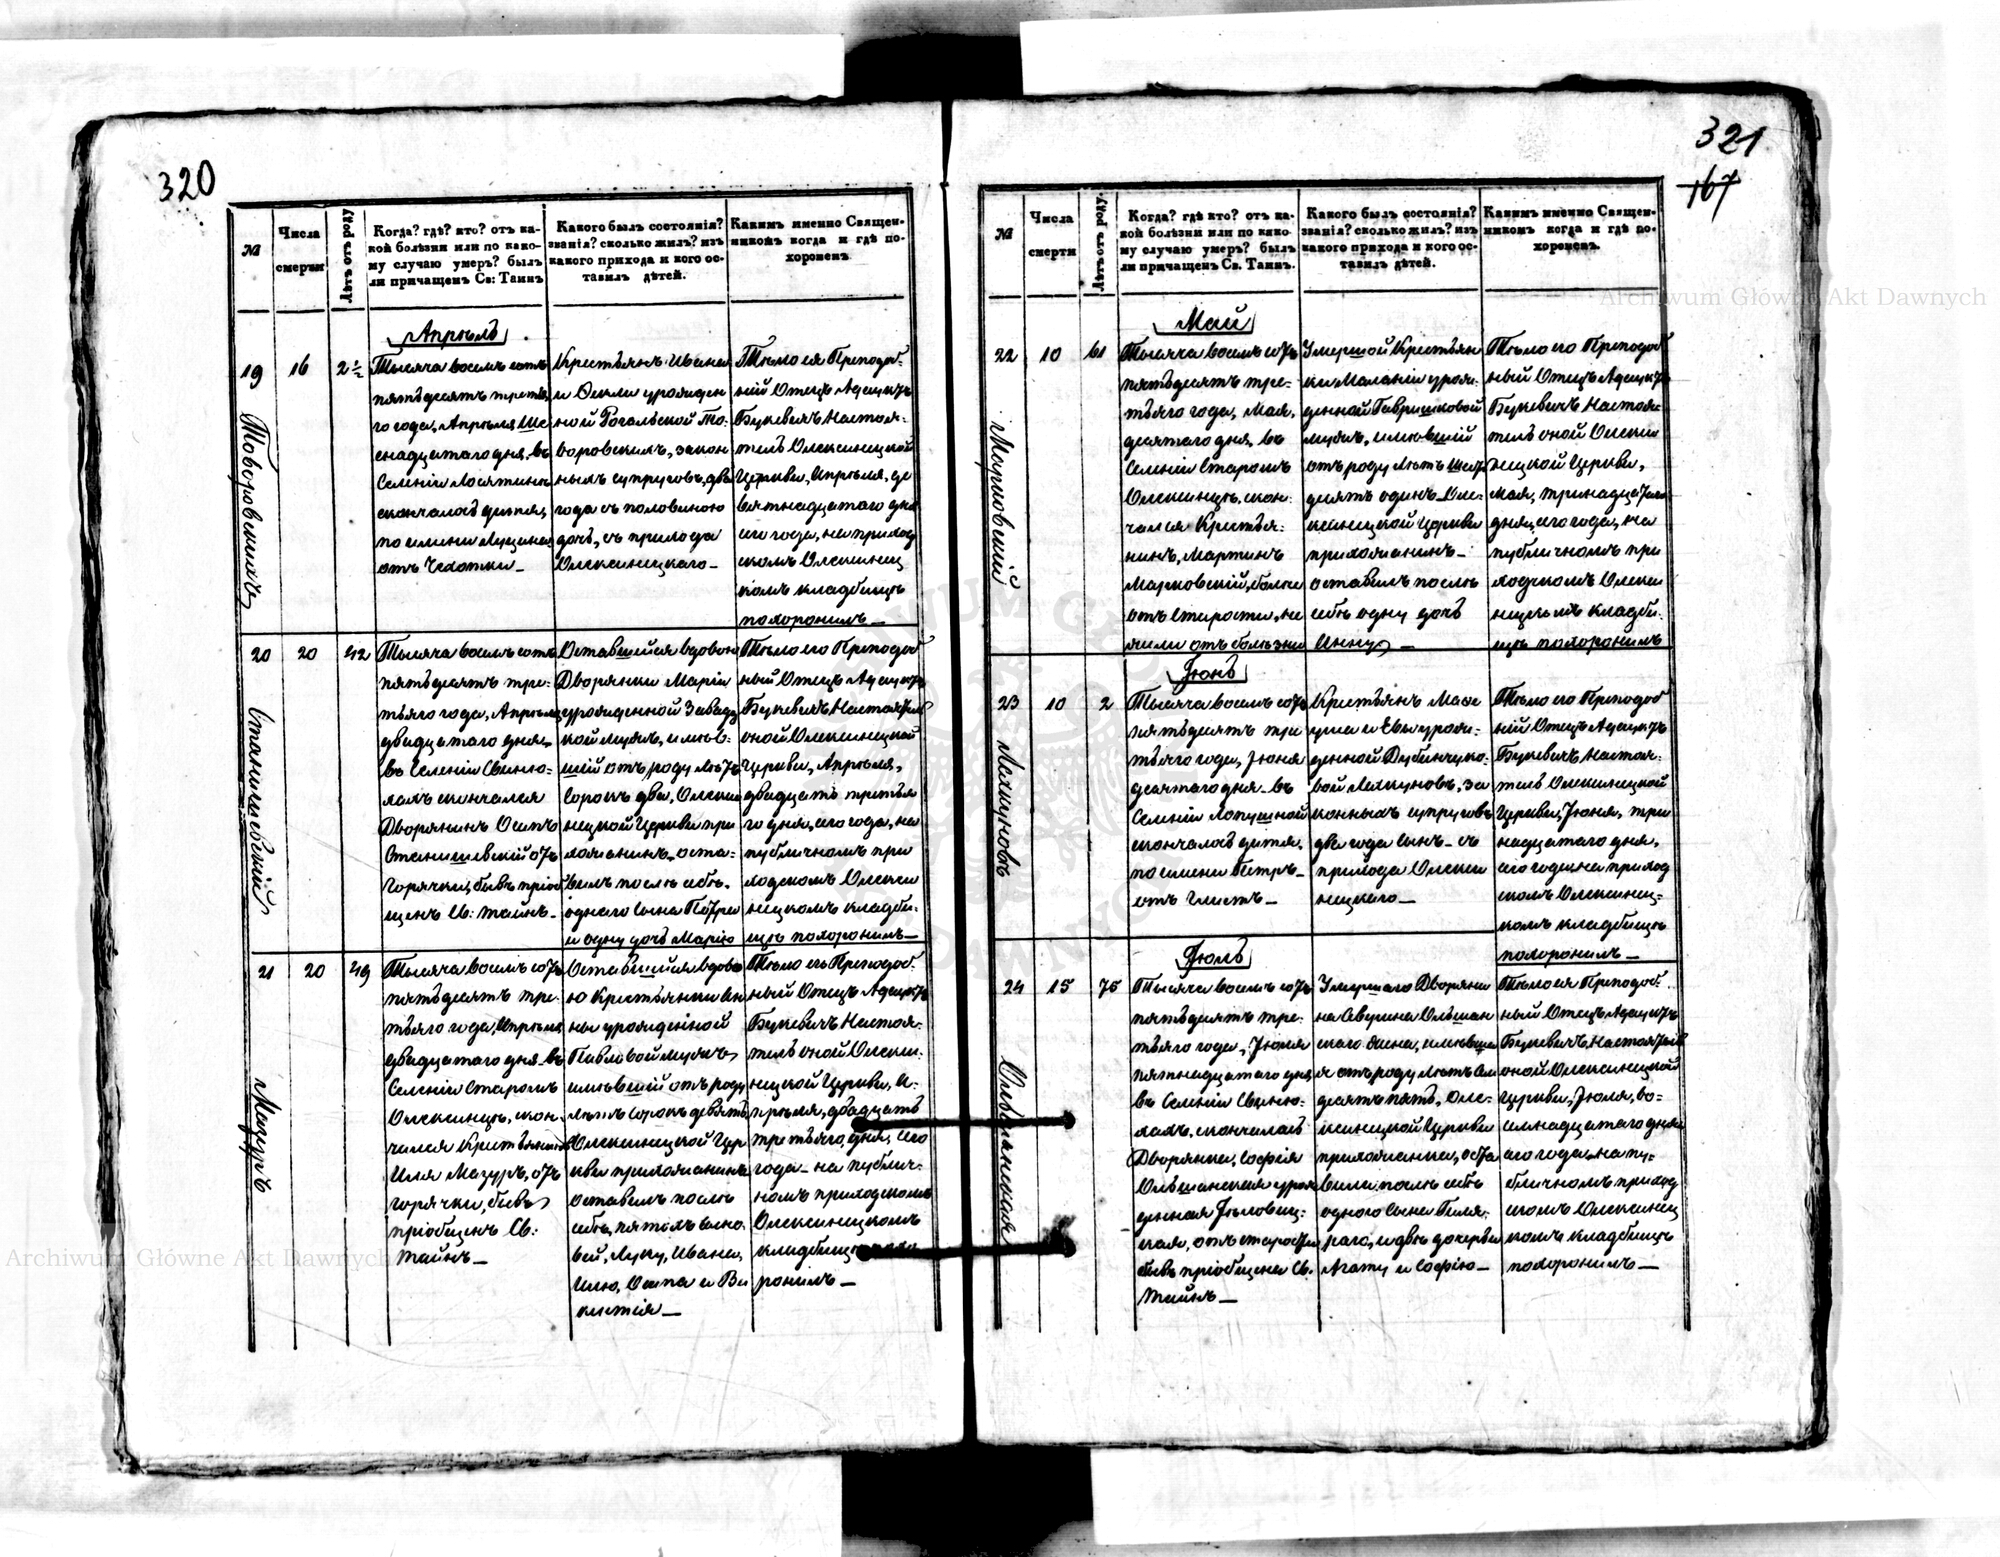 320
№
Числа
смерти
Лѣтъ отъ роду
Когда? гдѣ? кто? отъ ка-
кой болѣзни или по како-
му случаю умеръ? былъ
ли причащенъ Св: Таинъ
Какого былъ состоянія?
званія? сколько жилъ? изъ
какого прихода и кого ос-
тавилъ дѣтей.
Какимъ именно Священ-
никомъ когда и гдѣ по-
хороненъ
Апрѣль
19
16
2½
Тысяча восемь сотъ
пятьдесятъ третья
го года, Апрѣля Ше
снадцатаго дня, въ
Селеніи
скончалось дитя,
по имени
отъ Чахотки —
Крестьянъ Ивана
и Феклы урожден
ной Рогальской То-
воровскихъ, закон
ныхъ супруговъ, два
года съ половиною
дочь, съ прихода
Олексинецкаго —
Тѣло ея Преподоб-
ный Отецъ Адецыктъ
Букевичъ Настоя-
тель Олексинецкой
Церкви, Апрѣля, де
вятнадцатаго дня
сего года, на приход
скомъ Олексинец
комъ кладбищѣ
похоронилъ —
Товоровскихъ
20
20
42
Тысяча восемь сотъ
пятьдесятъ тре-
тьяго года, Апрѣля
двадцатаго дня,
въ Селеніи Свиню-
хахъ скончался
Дворянинъ Осипъ
Станишевскій отъ
горячки, бывъ пріоб
щенъ Св: Тайнъ —
Оставшейся вдовою
Дворянки Маріи
урожденной Завадз
кой мужъ, имѣв-
шій отъ роду лѣтъ
Сорокъ два, Олекси
нецкой Церкви при
хожанинъ, оста-
вилъ послѣ себя,
однаго сына Петра
и одну дочь Марію
Тѣло его Преподоб
ный Отецъ Адецыктъ
Букевичъ Настоятель
оной Олексинецкой
Церкви, Апрѣля,
двадцать третья
го дня, сего года, на
публичномъ при
ходскомъ Олекси
нецкомъ кладби-
щѣ похоронилъ —
Станишевскій
21
20
49
Тысяча восемь сотъ
пятьдесятъ тре-
тьяго года, Апрѣля
двадцатаго дня въ
Селеніи Старомъ
Олексинцѣ, скон-
чался Крестьянинъ
Илія Мазуръ, отъ
горячки, бывъ
пріобщенъ Св:
Тайнъ —
Оставшейся вдово
ю Крестьянки Ан
ны урожденной
Павловой мужъ,
имѣвшій отъ роду
лѣтъ сорокъ девять,
Олексинецкой Цер
кви прихожанинъ
оставилъ послѣ
себя, пятохъ сыно-
вей, Луку, Ивана,
Илію, Осипа и Ви
кентія —
Тѣло его Преподоб-
ный Отецъ Адецыктъ
Букевичъ Настоя-
тель оной Олексин-
нецкой Церкви, А-
прѣля, двадцать
третьяго, дня, сего
года — на публич-
номъ приходскомъ
Олексинецкомъ
кладбищѣ похо-
ронилъ —
Мазуръ
321
167
№
Числа
смерти
Лѣтъ отъ роду
Когда? гдѣ кто? отъ ка-
кой болѣзни или по како-
му случаю умеръ? былъ
ли причащенъ Св. Таинъ.
Какого былъ состоянія?
званія? сколько жилъ? изъ
какого прихода и кого ос-
тавилъ дѣтей.
Какимъ именно Священ-
никомъ когда и гдѣ по-
хороненъ.
Май
22
10
61
Тысяча восемь сотъ
пятьдесятъ тре-
тьяго года, Мая,
десятаго дня, въ
Селеніи Старомъ
Олексинцѣ, скон-
чался Крестья-
нинъ, Мартинъ
Марковскій, болѣе
отъ старости, не
жели отъ болѣзни
Умершой Крестьян
ки Маланіи урож-
денной Гавришковой
мужъ, имѣвшій
отъ роду лѣтъ шесть
десять одинъ — Оле-
ксинецкой Церкви
прихожанинъ —
оставилъ послѣ
себѣ одну дочь
Анну —
Тѣло его Преподоб
ный Отецъ Адецыктъ
Букевичъ Настоя-
тель оной Олекси
нецкой Церкви,
Мая, тринадцатаго
дня, сего года, на
публичномъ при
ходскомъ Олекси
нецкомъ кладби-
щѣ похоронилъ
Марковскій
Іюнь
23
10
2
Тысяча восемь сотъ
пятьдесятъ тре
тьяго года, Іюня
десятаго дня — въ
Селеніи Лопушной
скончалось дитя,
по имени Петръ —
отъ Глистъ —
Крестьянъ Мате
уша и Евы урож-
денной Дубинчуко-
вой Махнуновъ, за
конныхъ супруговъ
два года сынъ — съ
прихода Олекси
нецкаго —
Тѣло его Преподоб
ный Отецъ Адецыктъ
Букевичъ Настоя-
тель Олексинецкой
Церкви, Іюня, три
надцатаго дня,
сего года на приход
скомъ Олексинец-
комъ кладбищѣ
похоронилъ —
Махнуновъ
Іюль
24
15
75
Тысяча восемь сотъ
пятьдесятъ тре-
тьяго года, Іюля
пятнадцатаго дня
въ Селеніи Свиню-
хахъ, скончалась
Дворянка, Софія
Ольшанская урож
денная
ская, отъ старости
бывъ пріобщена Св.
Тайнъ —
Умершаго Дворяни
на Аверина Ольшан
скаго жена, имѣвша
я отъ роду лѣтъ сем
десять пять, Оле-
ксинецкой Церкви
прихожанка, оста
вила послѣ себѣ
одного сына Гиля-
раго, и двѣ дочерви
Агату и Софію —
Тѣло ея Преподоб-
ный Отецъ Адецыктъ
Букевичъ, Настоятель
оной Олексинецкой
Церкви, Іюля, во-
семнадцатаго дня
сего года, на пу-
бличномъ приход
скомъ Олексинец
комъ кладбищѣ
похоронилъ —
Ольшанская
Archiwum Główne Akt Dawnych
Archiwum Główne Akt Dawnych